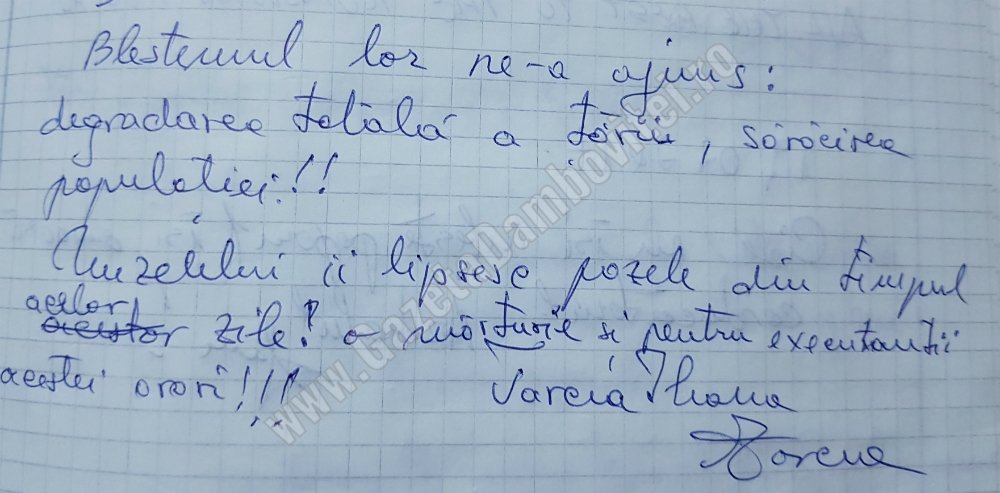 Blestemul lor ne-a ajuns:
degradarea totală a țării, sărăcirea
populației!!
Muzeului îi lipsesc pozele din timpul
acelor
zile! o mărturie și pentru executanții
acestei orori!!!
Varcia Ileana
www.GazetaDambovitei.ro